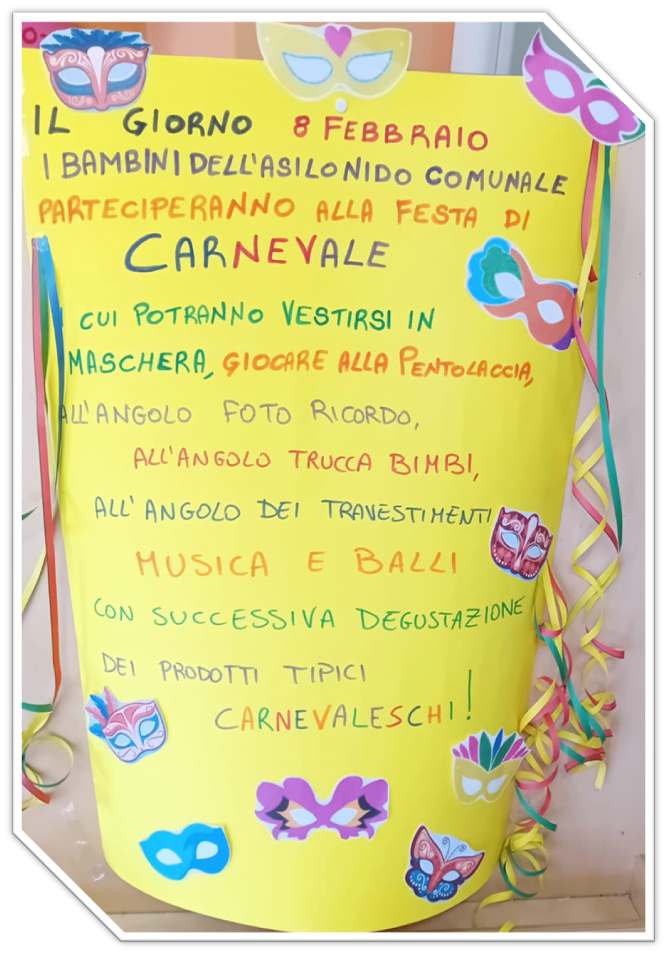 IL GIORNO 8 FEBBRAIO
I BAMBINI DELL'ASILO NIDO COMUNALE
PARTECIPERANNO ALLA FESTA DI
CARNEVALE
CUI POTRANNO VESTIRSI IN
MASCHERA, GIOCARE ALLA PENTOLACCIA,
ALL'ANGOLO FOTO RICORDO,
ALL'ANGOLO TRUCCA BIMBI,
ALL'ANGOLO DEI TRAVESTIMENTI
MUSICA E BALLI
CON SUCCESSIVA DEGUSTAZIONE
DEI PRODOTTI TIPICI
CARNEVALESCHI!